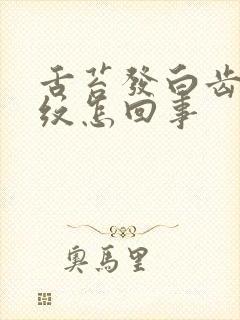 舌苔發白齒
紋怎回事
奧馬里